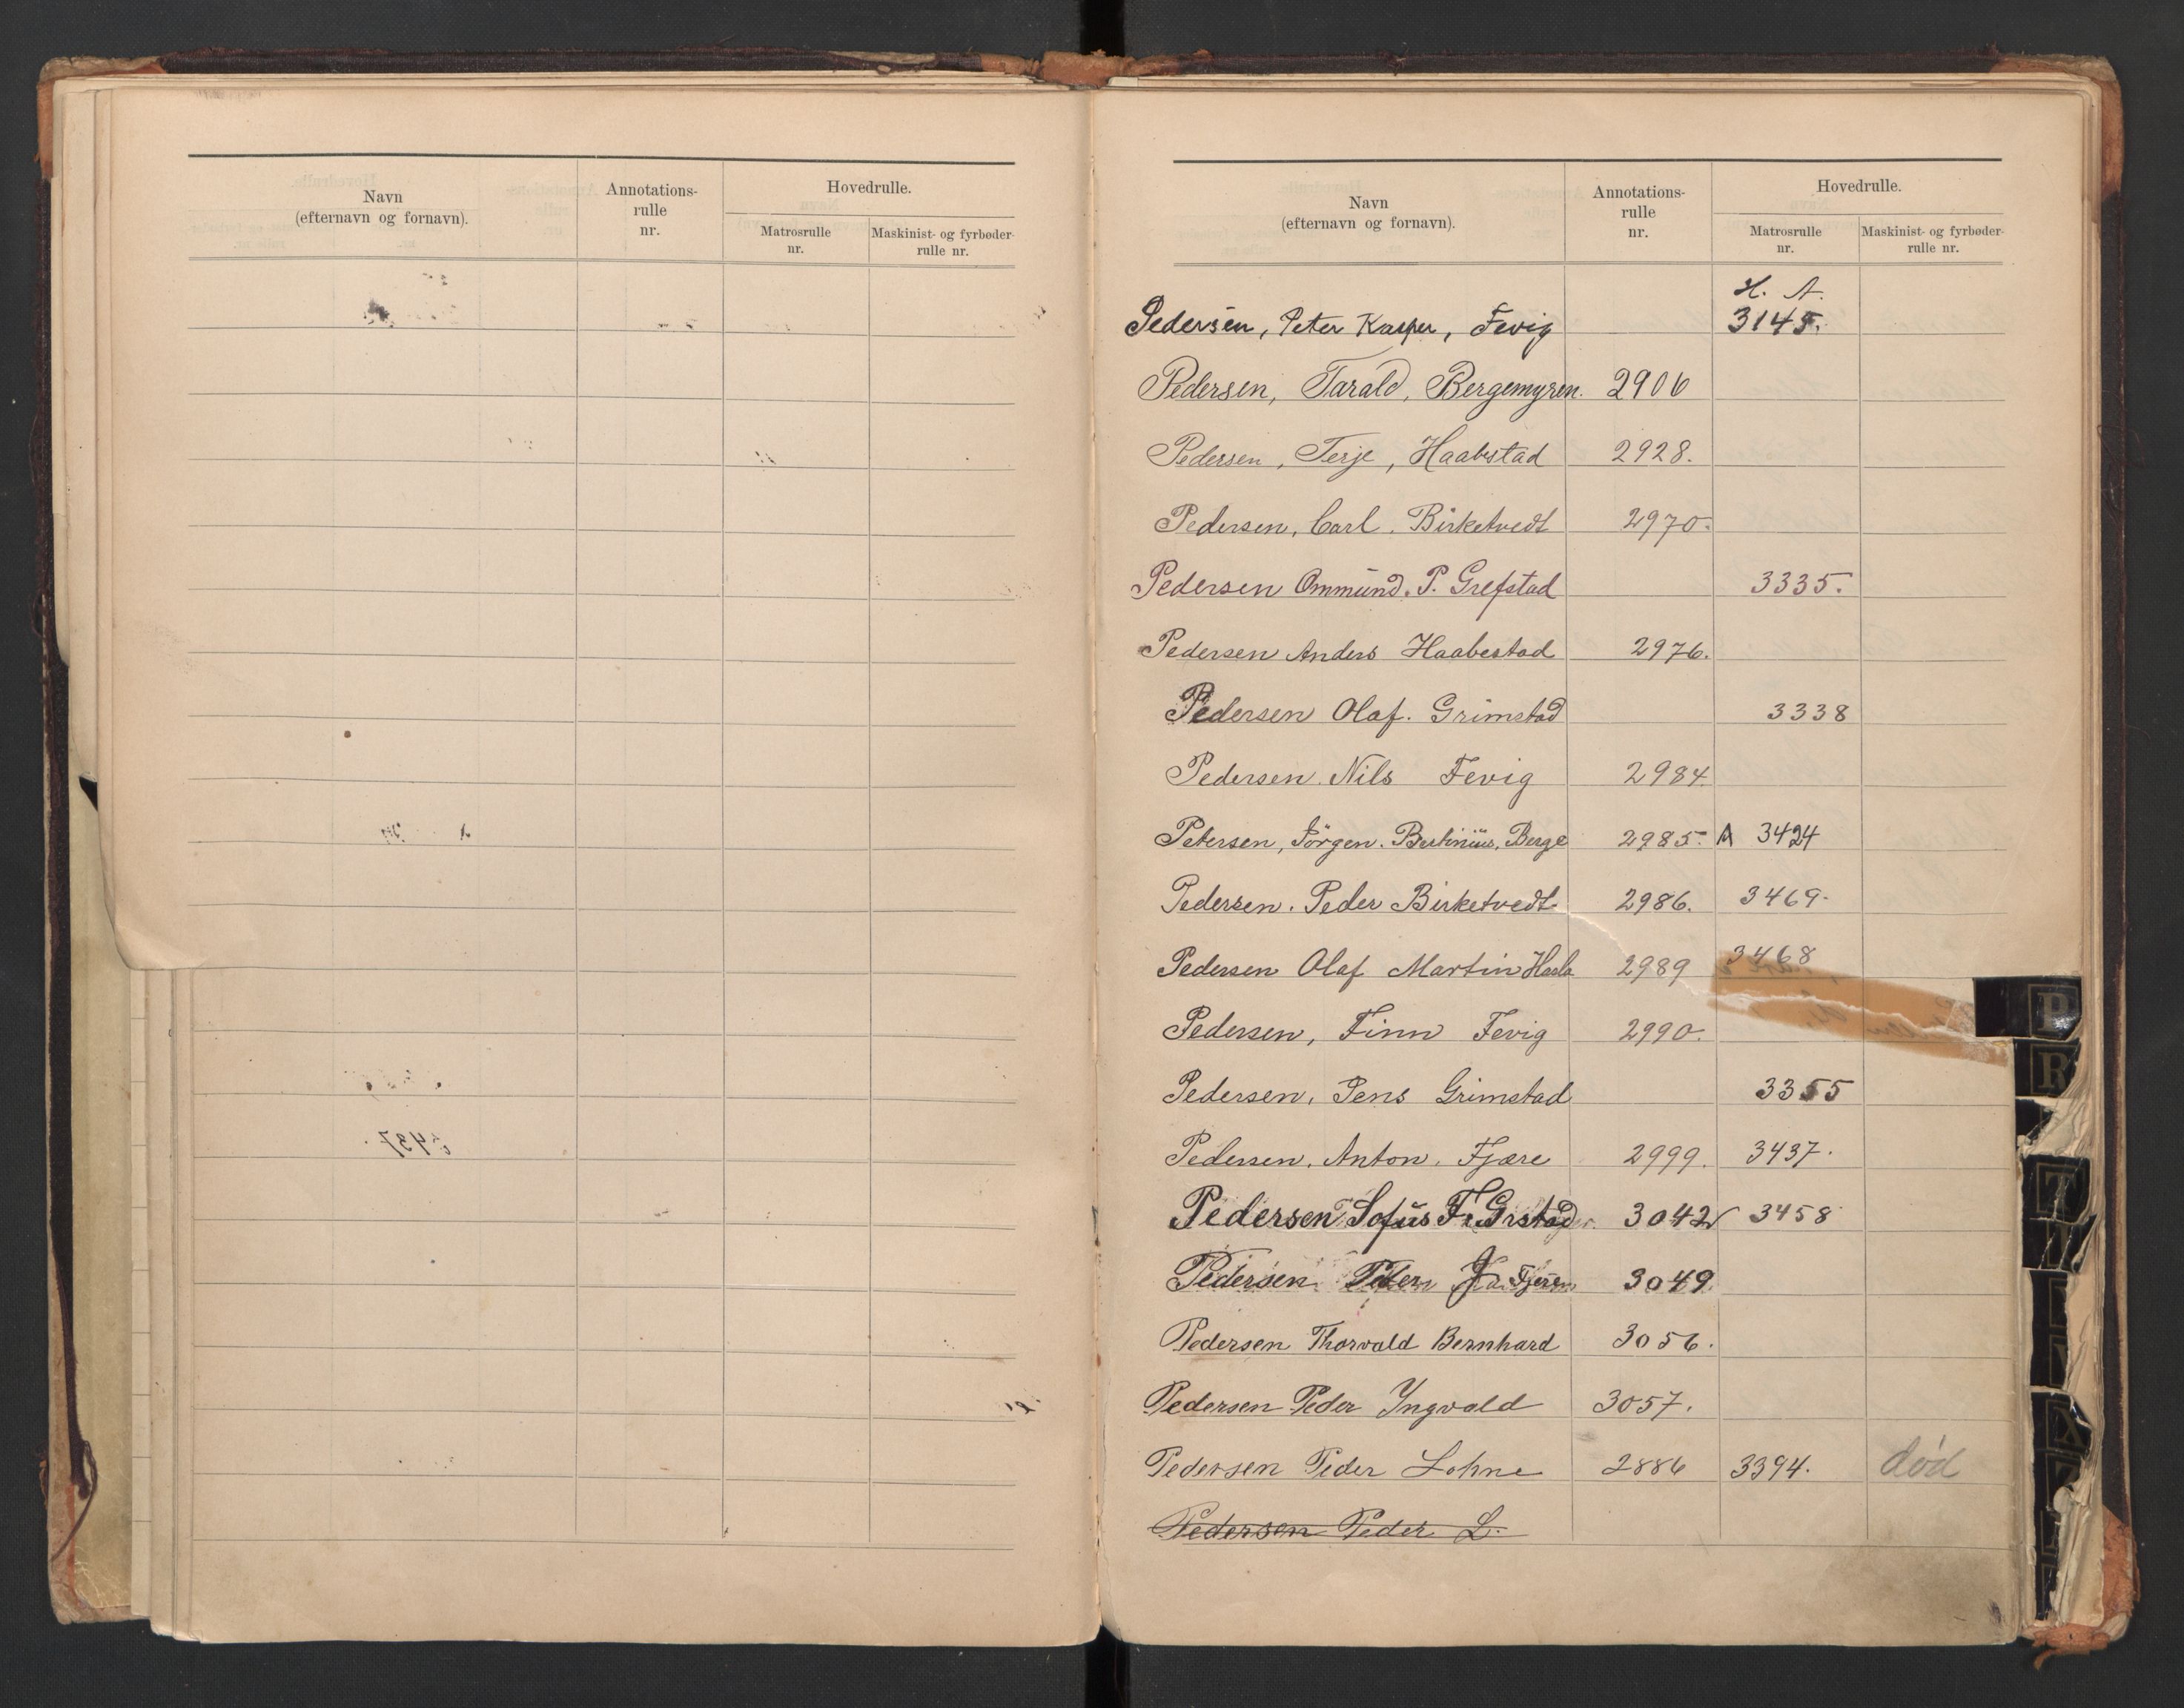 Navn
(efternavn og fornavn).
Annotations-
rulle
nr.
Hovedrulle.
Matrosrulle
nr.
Maskinist- og fyrbøder-
rulle nr.
Navn
(efternavn og fornavn).
Annotations-
rulle
nr.
Hovedrulle.
Matrosrulle
nr.
Maskinist- og fyrbøder-
rulle nr.
H. A.
Pedersen, Peter Kasper, Fevig 3145.
Pedersen, Tarald, Bergemyren. 2906
Pedersen, Terje, Haabstad 2928.
Pedersen, Carl. Birketvedt 2970.
Pedersen Ommund. P. Grefstad 3335.
Pedersen Anders Haabestad 2976.
Pedersen Olaf. Grimstad 3338
Pedersen. Nils Fevig 2984.
Petersen, Jörgen. Bertinius, Berge 2985. A 3424
Pedersen. Peder Birketvedt 2986. 3469.
Pedersen Olaf Martin 2989 3468
Pedersen, Finn Fevig 2990.
Pedersen, Jens Grimstad 3355
Pedersen. Anton. Fjære 2999. 3437.
Pedersen Sofus F. Grstad 3042 3458
Pedersen Peder 3049.
Pedersen Thorvald Bernhard 3056.
Pedersen Peder Yngvald 3057.
Pedersen Peder Lohne 2886 3394. død
Pedersen Peder L.
P
R
T
X